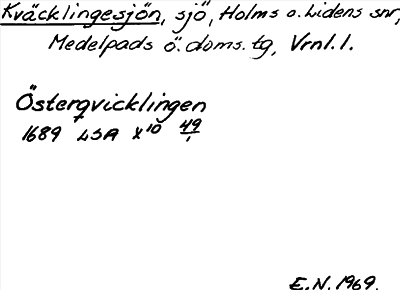 Kväcklingesjön, sjö, Holms o. Lidens snr,
Medelpads ö. doms. tg, Vrnl. l.
Östergvicklingen
1689 LSA X10 49/1
E.N. 1969.